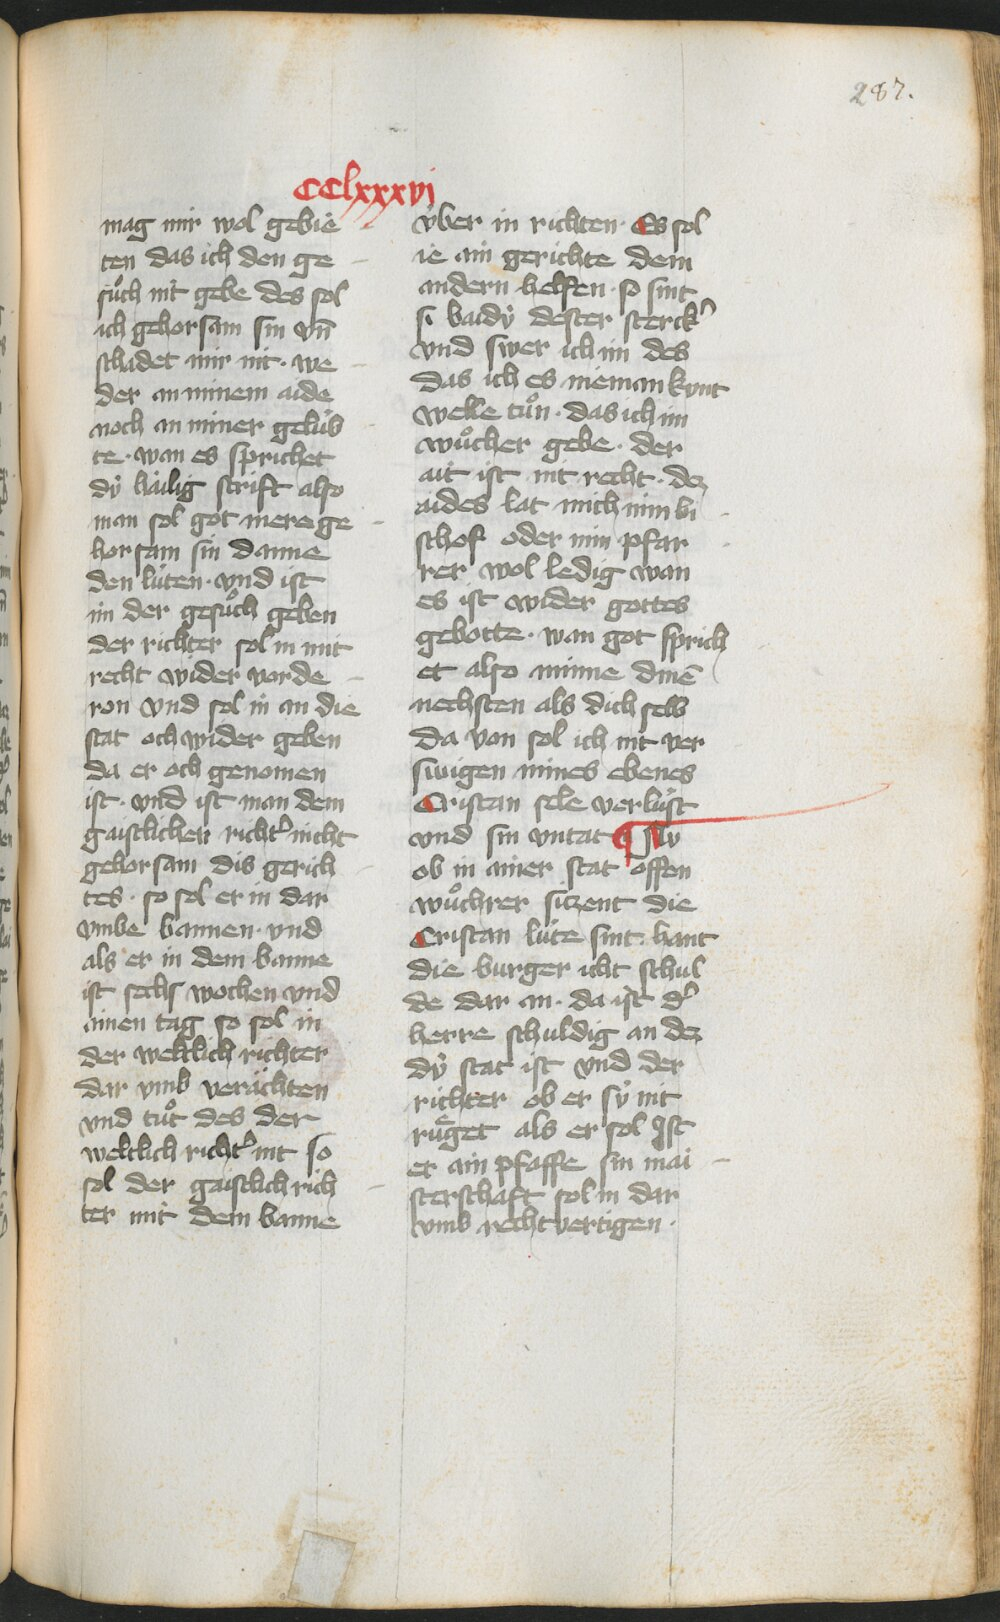 287.
CClxxxvi
mag mir wol gebie
ten das ich den ge
sůch nit gebe des sol
ich gehorsam sin vn̄
schadet mir nit · we
der an minem aide
noch an miner gelúb
te · wan es sprichet
dÿ háilig scrift also
man sol got mere ge
horsam sin danne
den lúten · vnd ist
im der gesůch geben
der richter sol in mit
recht wider vorde
ron vnd sol in an die
stat och wider geben
da er och genomen
ist · vnd ist man dem
gaistlichen richt͛ nicht
gehorsam dis gerich
tes · so sol er in dar
vmbe bannen · vnd
als er in dem banne
ist sechs wochen vnd
ainen tag so sol in
der weltlich richter
dar vmb verächten
vnd tůt des der
weltlich richt͛ nit so
sol der gaistlich rich
ter mit dem banne
v́ber in richten · Es sol
ie ain gerichte dem
andern helfen · so sint
si baidÿ dester sterck͛
vnd swer ich im des
das ich es nieman kvnt
welle tůn · das ich im
wůcher gebe · der
ait ist nit recht · dez
aides lat mich min bi
schof oder min pfar
rer wol ledig wan
es ist wider gottes
gebotte · wan got sprich
et also minne dinē
nechsten als dich selb
da von sol ich nit ver
swigen mines ebenes
Cristan sele verlúst
vnd sin vntat ¶ Sÿ
ob in ainer stat offen
wůchrer siczent die
Cristan lúte sint · hant
die burger icht schul
de dar an · da ist d͛
herre schuldig an dez
dÿ stat ist vnd der
richter ob er sÿ nit
růget als er sol Ist
er ain pfaffe sin mai
sterschaft sol in dar
vmb rechtvertigen ·